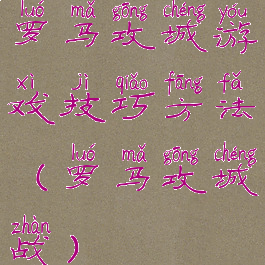 luó mǎ gōng chéng yóu
罗马攻城游
xì jì qiǎo fāng fǎ
戏技巧方法
luó mǎ gōng chéng
(罗马攻城
zhàn
战)